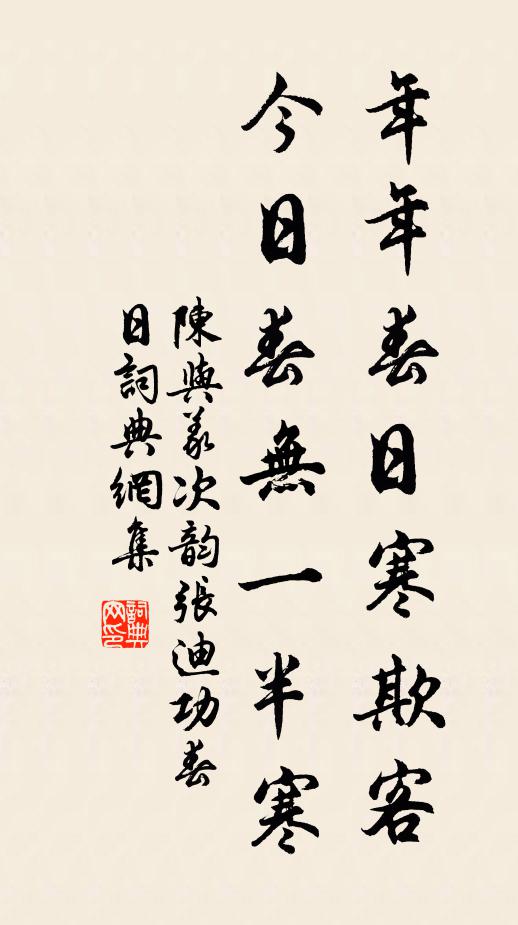 年年春日寒欺客
今日春無一半寒
陳與義次韵張迪功春
日詞典網集
詞典網印